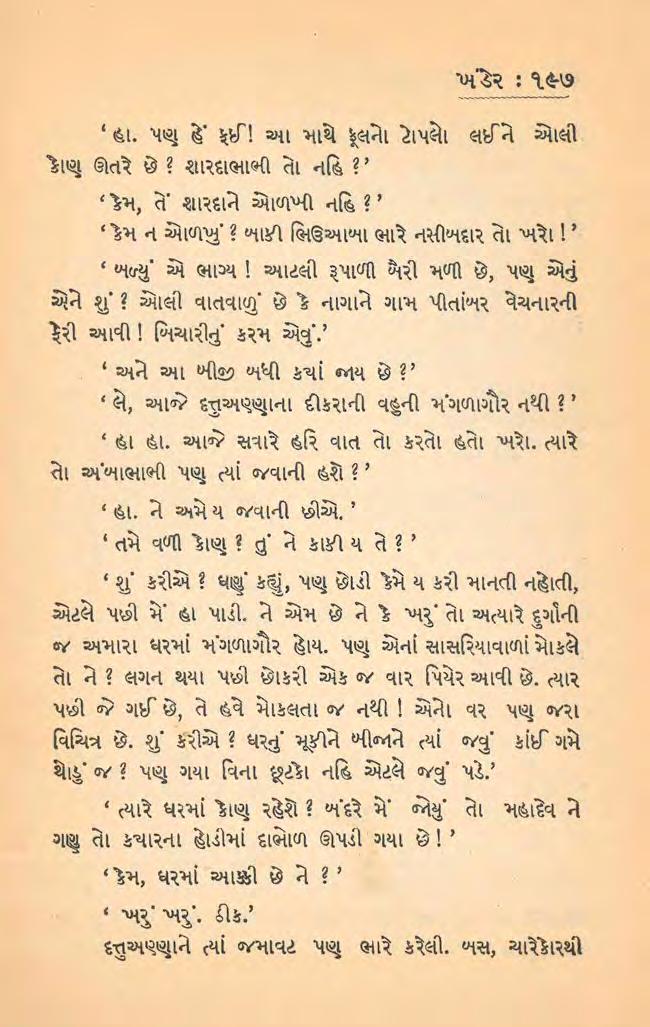 ખંડેર : ૧૯૭
‘ હા. પણ હેં ફઈ! આ માથે ફૂલનો ટોપલો લઈને ઓલી
કોણ ઊતરે છે ? શારદાભાભી તો નહિ ?’
‘ કેમ, તેં શારદાને ઓળખી નહિ ?’
‘ કેમ ન ઓળખું ? બાકી ભિઉઆબા ભારે નસીબદાર તો ખરો !’
‘ બળ્યું એ ભાગ્ય ! આટલી રૂપાળી બૈરી મળી છે, પણ એનું
એને શું ? ઓલી વાતવાળું છે કે નાગાને ગામ પીતાંબર વેચનારની
ફેરી આવી ! બિચારીનું કરમ એવું.’
‘ અને આ બીજી બધી કયાં જાય છે ?’
‘ લે, આજે દત્તુઅણ્ણાના દીકરાની વહુની મંગળાગૌર નથી ?’
‘ હા હા. આજે સવારે હરિ વાત તો કરતો હતો ખરો. ત્યારે
તો અંબાભાભી પણ ત્યાં જવાની હશે ?’
‘ હા. ને અમેય જવાની છીએ.’
‘ તમે વળી કોણ ? તું ને કાકીય તે ? ’
‘ શું કરીએ ? ઘણું કહ્યું, પણ છોડી કેમેય કરી માનતી નહોતી,
એટલે પછી મેં હા પાડી. ને એમ છે ને કે ખરું તો અત્યારે દુર્ગાની
જ અમારા ઘરમાં મંગળાગૌર હોય. પણ એનાં સાસરિયાવાળાં મોકલે
તો ને ? લગન થયા પછી છોકરી એક જ વાર પિયેર આવી છે. ત્યાર
પછી જે ગઈ છે, તે હવે મોકલતા જ નથી ! એનો વર પણ જરા
વિચિત્ર છે. શું કરીએ ? ઘરનું મૂકીને બીજાને ત્યાં જવું કાંઈ ગમે
થોડું જ ? પણ ગયા વિના છૂટકો નહિ એટલે જવું પડે.’
‘ ત્યારે ઘરમાં કોણ રહેશે ? બંદરે મેં જોયું તો મહાદેવ ને
ગણુ તો કયારના હોડીમાં દાભોળ ઊપડી ગયા છે ! ’
‘ કેમ, ઘરમાં આક્કી છે ને ? ’
‘ ખરું ખરું. ઠીક.’
દત્તુઅણ્ણાને ત્યાં જમાવટ પણ ભારે કરેલી. બસ, ચારેકોરથી